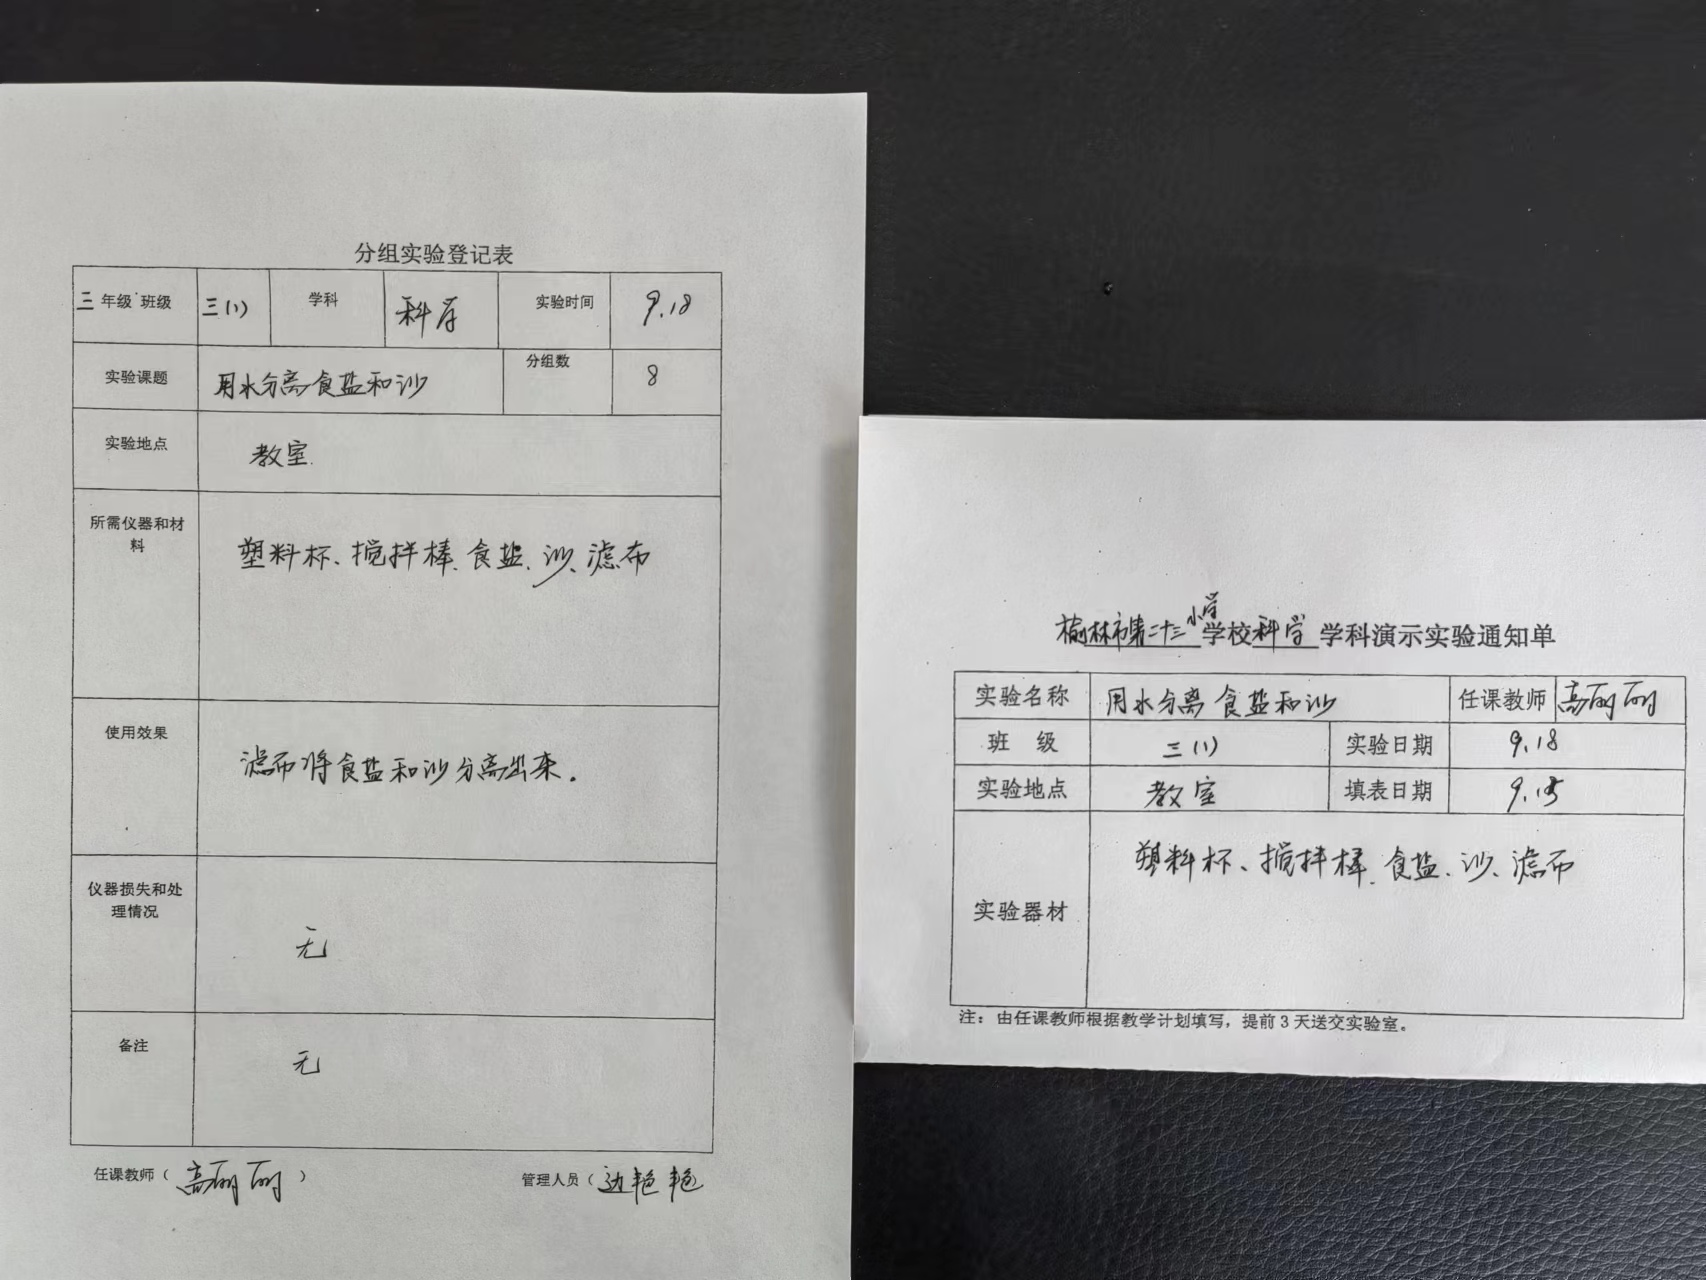 分组实验登记表
三年级 班级 三(1) 学科 科学 实验时间 9.18
实验课题 用水分离食盐和沙 分组数 8
实验地点 教室
所需仪器和材
料
塑料杯、搅拌棒、食盐、沙、滤布
使用效果
滤布将食盐和沙分离出来。
仪器损失和处
理情况
无
备注
无
任课教师（高丽丽） 管理人员（边艳艳
榆林市第二十三小学学校科学学科演示实验通知单
实验名称 用水分离食盐和沙 任课教师 高丽丽
班 级 三(1) 实验日期 9.18
实验地点 教室 填表日期 9.15
实验器材
塑料杯、搅拌棒、食盐、沙、滤布
注：由任课教师根据教学计划填写，提前3天送交实验室。